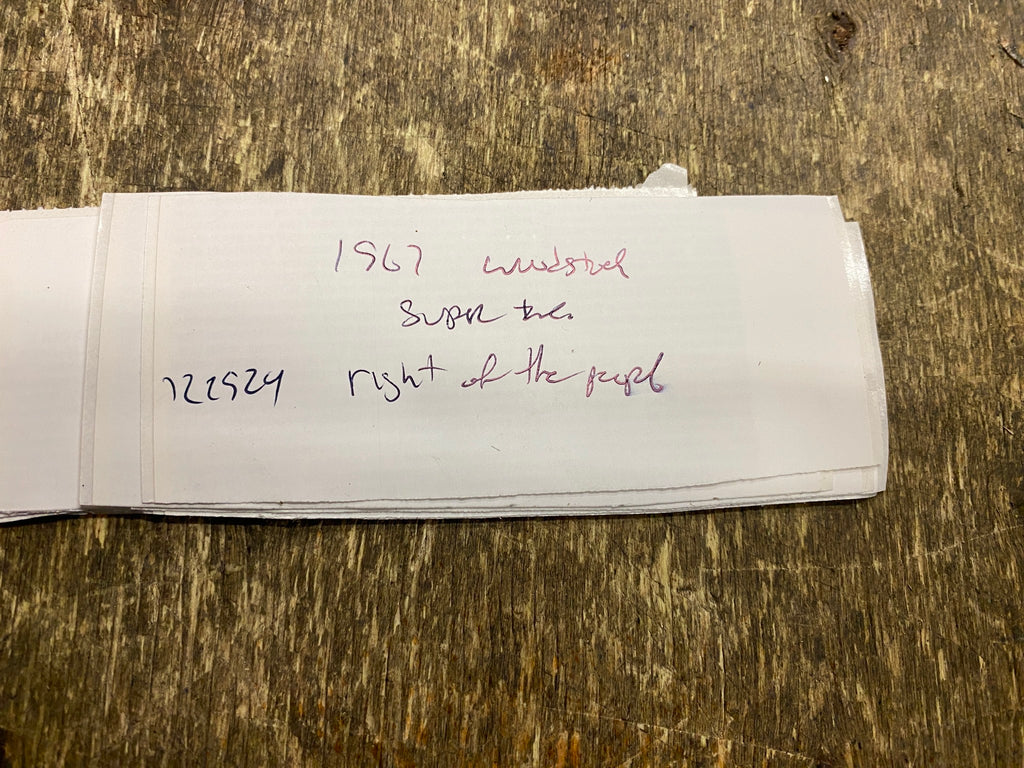 1967 woodstock
Super tre.
122924 right of the people